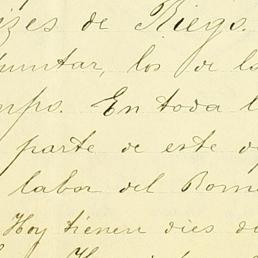 izes de Riego.
puntar, los de la
mpo. En toda l
parte de este d
labor del Rome
Hoy tienen dies d